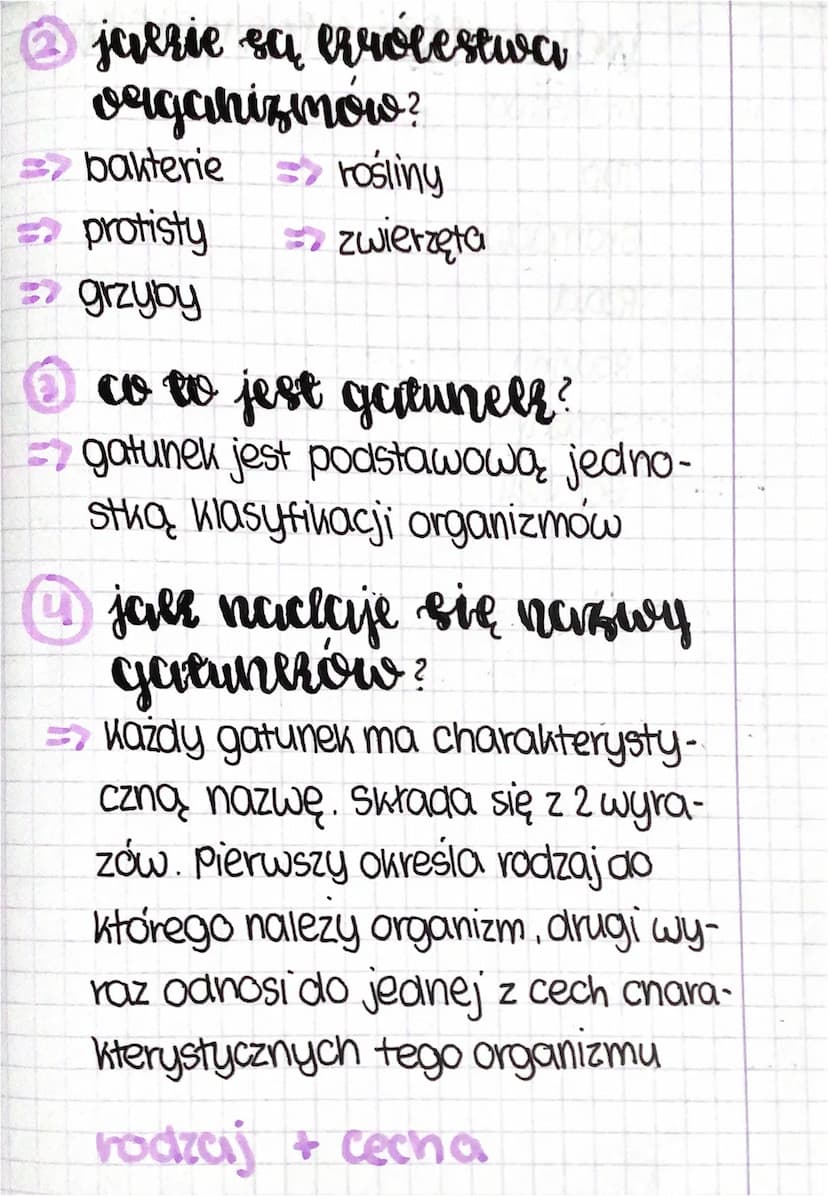 2 jakie są królestwa
organizmów?
=> bakterie => rośliny
=> protisty => zwierzęta
=> grzyby
3 co to jest gatunek?
=> gatunek jest podstawową jedno-
stką klasyfikacji organizmów
4 jak nadaje się nazwy
gatunków?
=> każdy gatunek ma charakterysty-
czną nazwę. Składa się z 2 wyra-
zów. pierwszy określa rodzaj do
którego należy organizm, drugi wy-
raz odnosi do jednej z cech chara-
kterystycznych tego organizmu
rodzaj + cecha